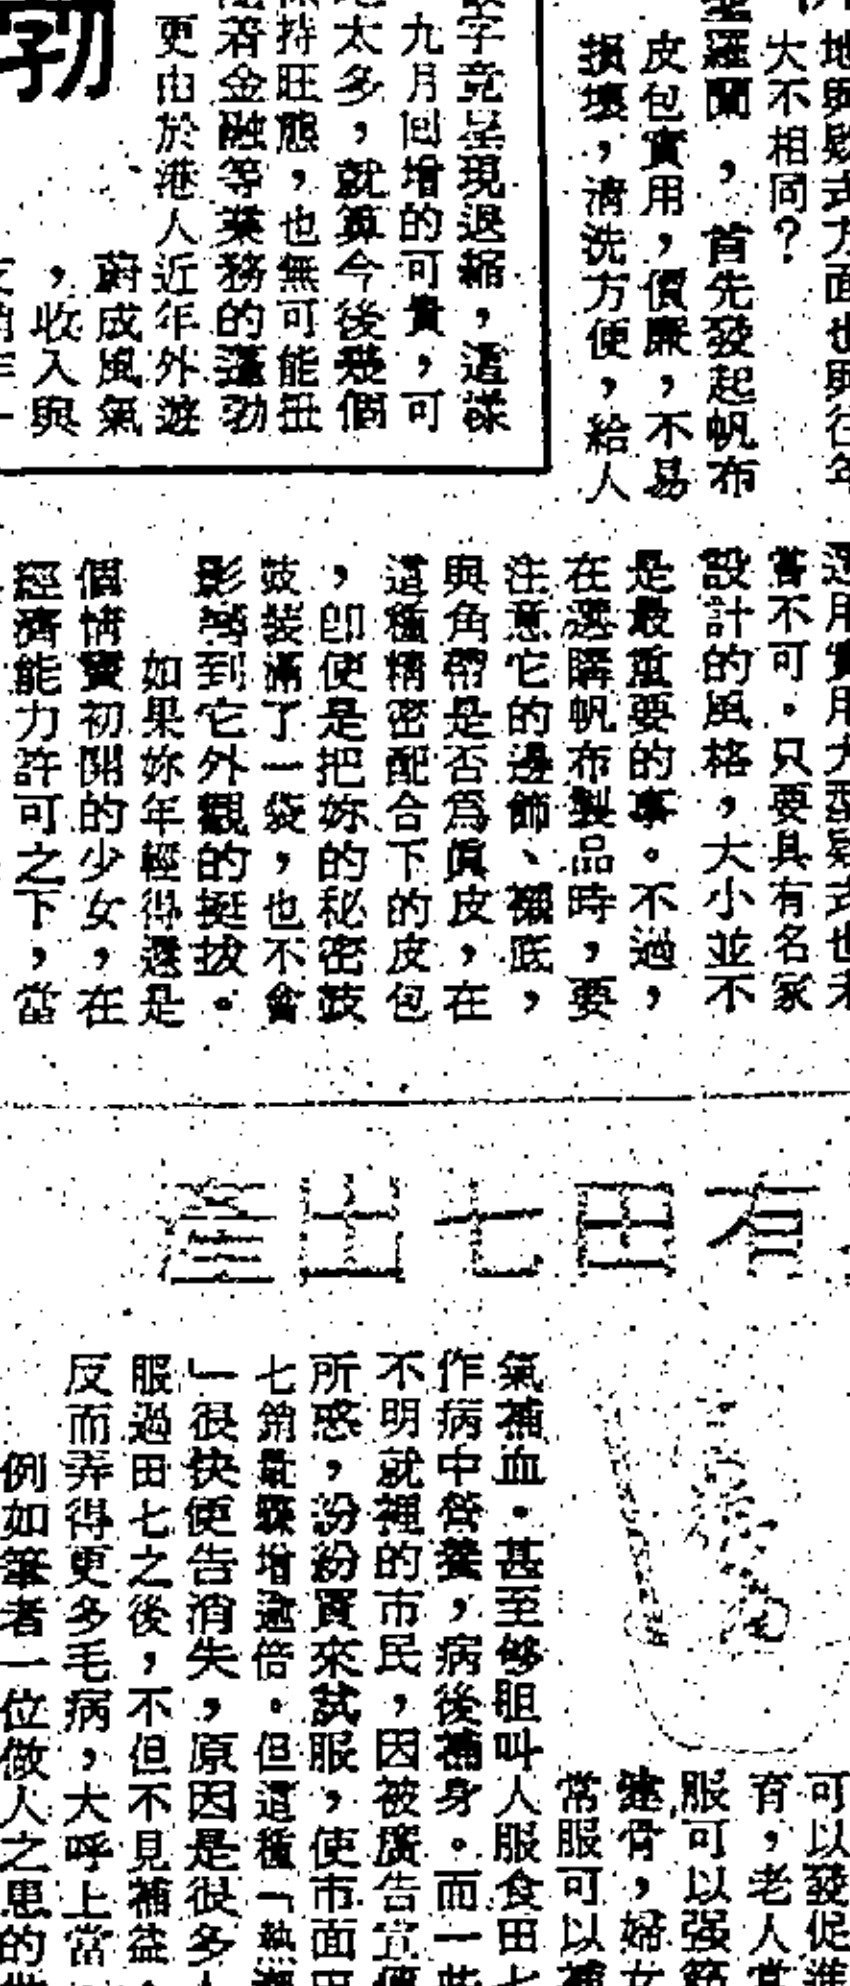 數字竟呈現退縮，這謀
九月回增的可貴，可
太多，就算今後幾個
保持旺態，也無可能扭
隨著金融等業務的蓬勃
更由於港人近年外遊
蔚成風氣
，收入與
勃
地與款式方面也與往年
大不相同？
聖羅蘭，首先發起帆布
皮包實用，價廉，不易
損壞，清洗方便，給人
選用實用大型款式也未
嘗不可。只要具有名家
設計的風格，大小並不
是最重要的事。不過，
在選購帆布製品時，要
注意它的邊飾、襯底，
與角帶是否為真皮，在
這種精密配合下的皮包
，即使是把妳的秘密鼓
鼓裝滿了一袋，也不會
影響到它外觀的挺拔。
如果妳年輕得還是
個情竇初開的少女，在
經濟能力許可之下，當
有田七出產
可以發促進
有，老人常
服可以强筋
健骨，婦女
常服可以補
氣補血。甚至够胆叫人服食田七
作病中營養，病後補身。而一些
不明就裡的市民，因被廣告宣傳
所惑，紛紛買來試服，使市面田
七銷量驟增逾倍。但這種「熱潮
」很快便告消失，原因是很多人
服過田七之後，不但不見補益，
反而弄得更多毛病，大呼上當
例如筆者一位做人之患的